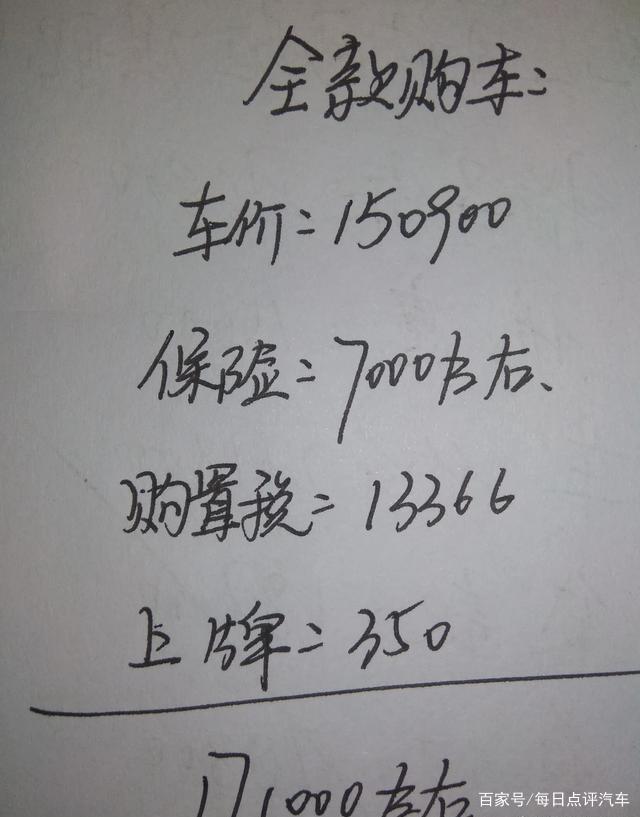 全款购车:
车价=150900
保险=7000左右、
购置税=13366
上牌=350
171000左右
百家号/每日点评汽车